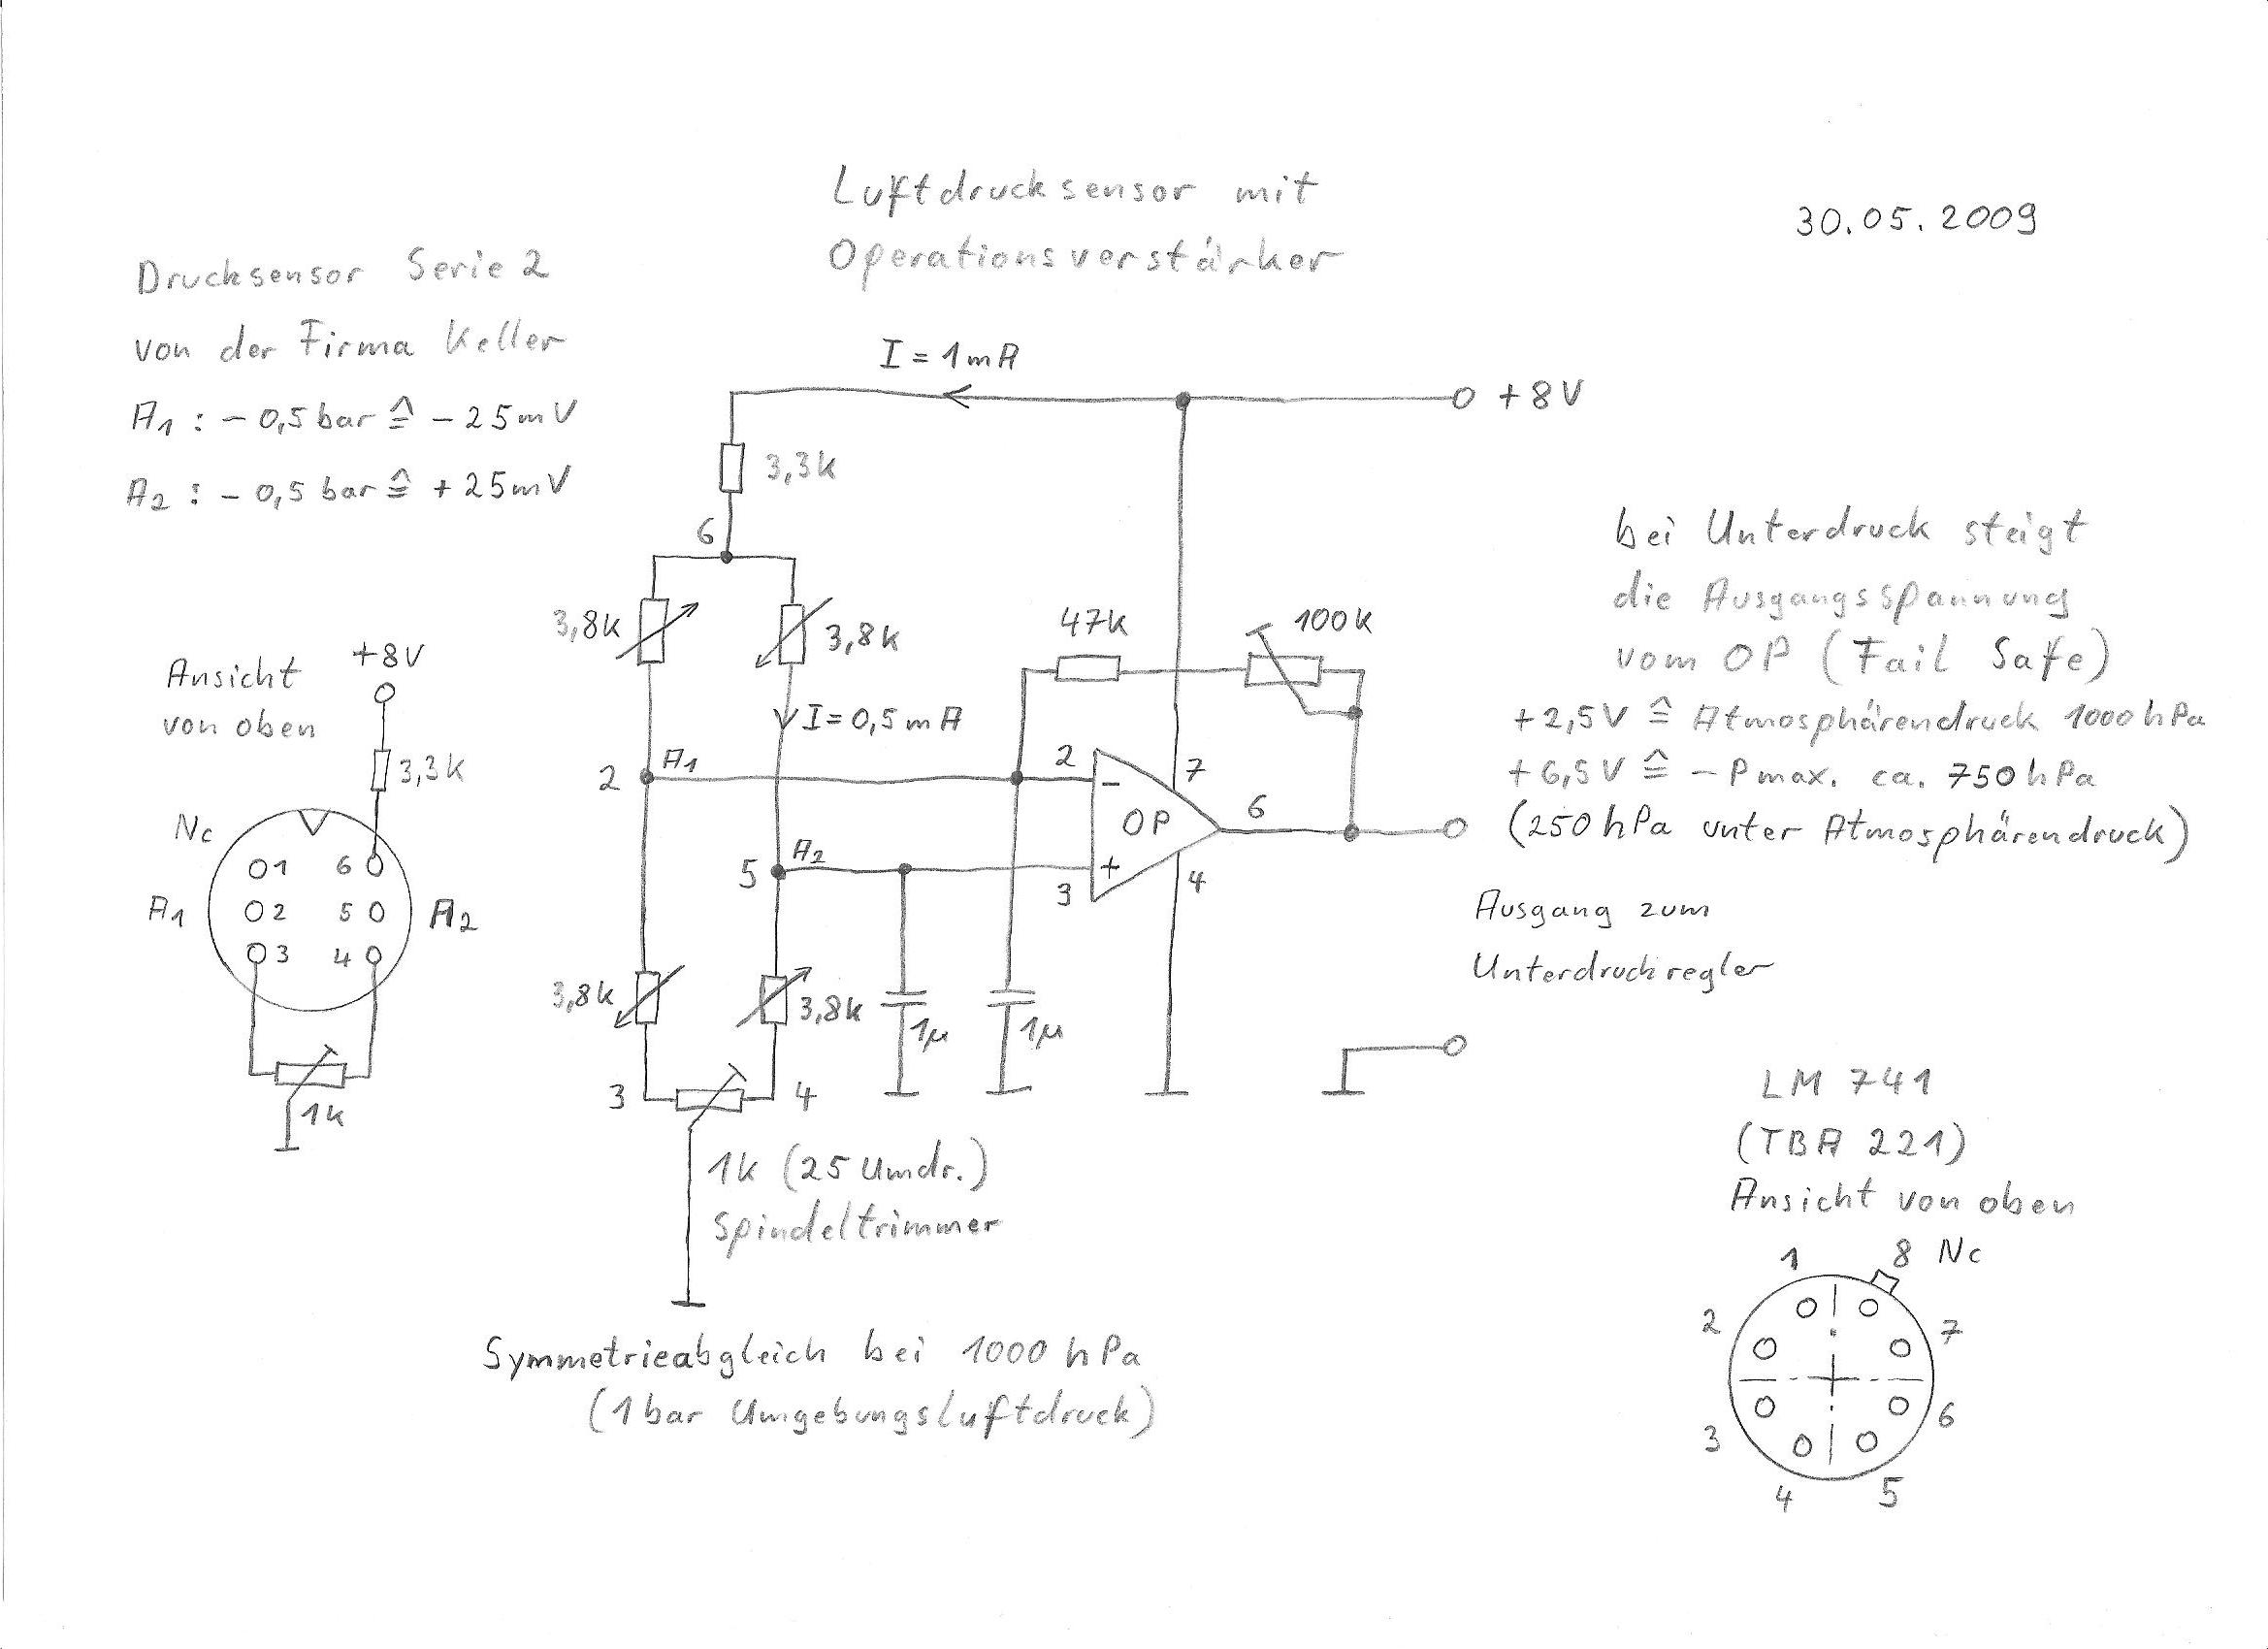 Luftdrucksensor mit
Operationsverstärker
30.05.2009
Drucksensor Serie 2
von der Firma Keller
A1 : - 0,5 bar ≙ - 25 mV
A2 : - 0,5 bar ≙ + 25 mV
I = 1 mA
+ 8 V
3,3k
6
3,8k
3,8k
I = 0,5 mA
47k
100k
2
A1
2
7
-
OP
6
+
3
4
5
A2
3,8k
3,8k
1µ
1µ
3
4
1k (25 Umdr.)
Spindeltrimmer
Symmetrieabgleich bei 1000 hPa
(1 bar Umgebungsluftdruck)
Ansicht
von oben
+8V
3,3k
Nc
1
6
A1
2
5
A2
3
4
1k
bei Unterdruck steigt
die Ausgangsspannung
vom OP (Fail Safe)
+ 2,5 V ≙ Atmosphärendruck 1000 hPa
+ 6,5 V ≙ - P max. ca. 750 hPa
(250 hPa unter Atmosphärendruck)
Ausgang zum
Unterdruckregler
LM 741
(TBA 221)
Ansicht von oben
1
8 Nc
2
7
3
6
4
5